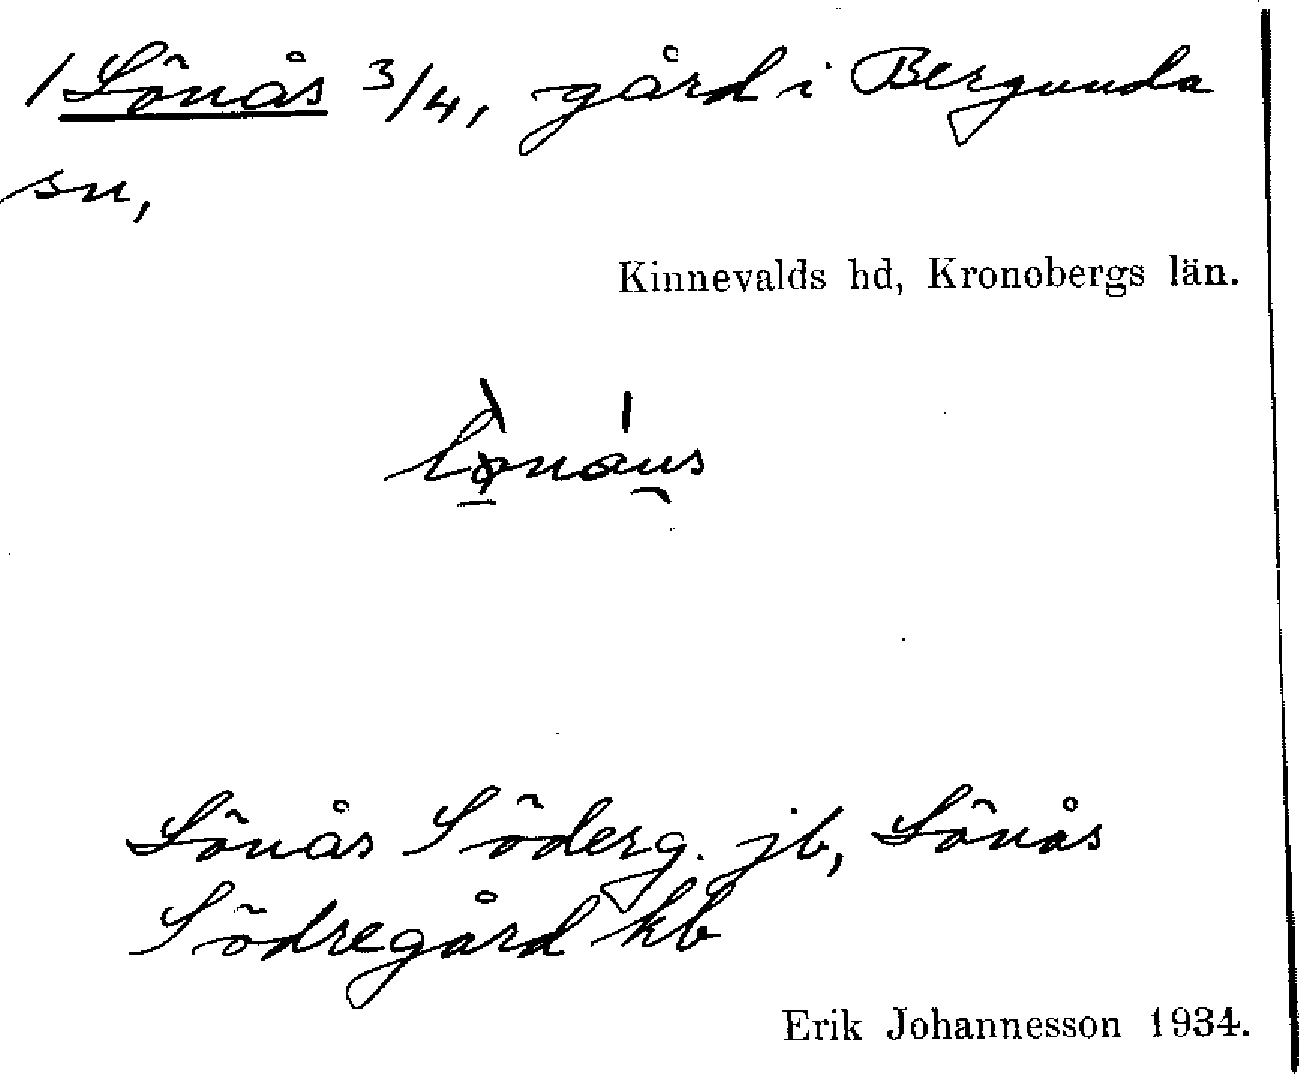 1 Lönås 3/4, gård i Bergunda
sn,
Kinnevalds hd, Kronobergs län.
Lönås Söderg. jb, Lönås
Södregård kb
Erik Johannesson 1934.